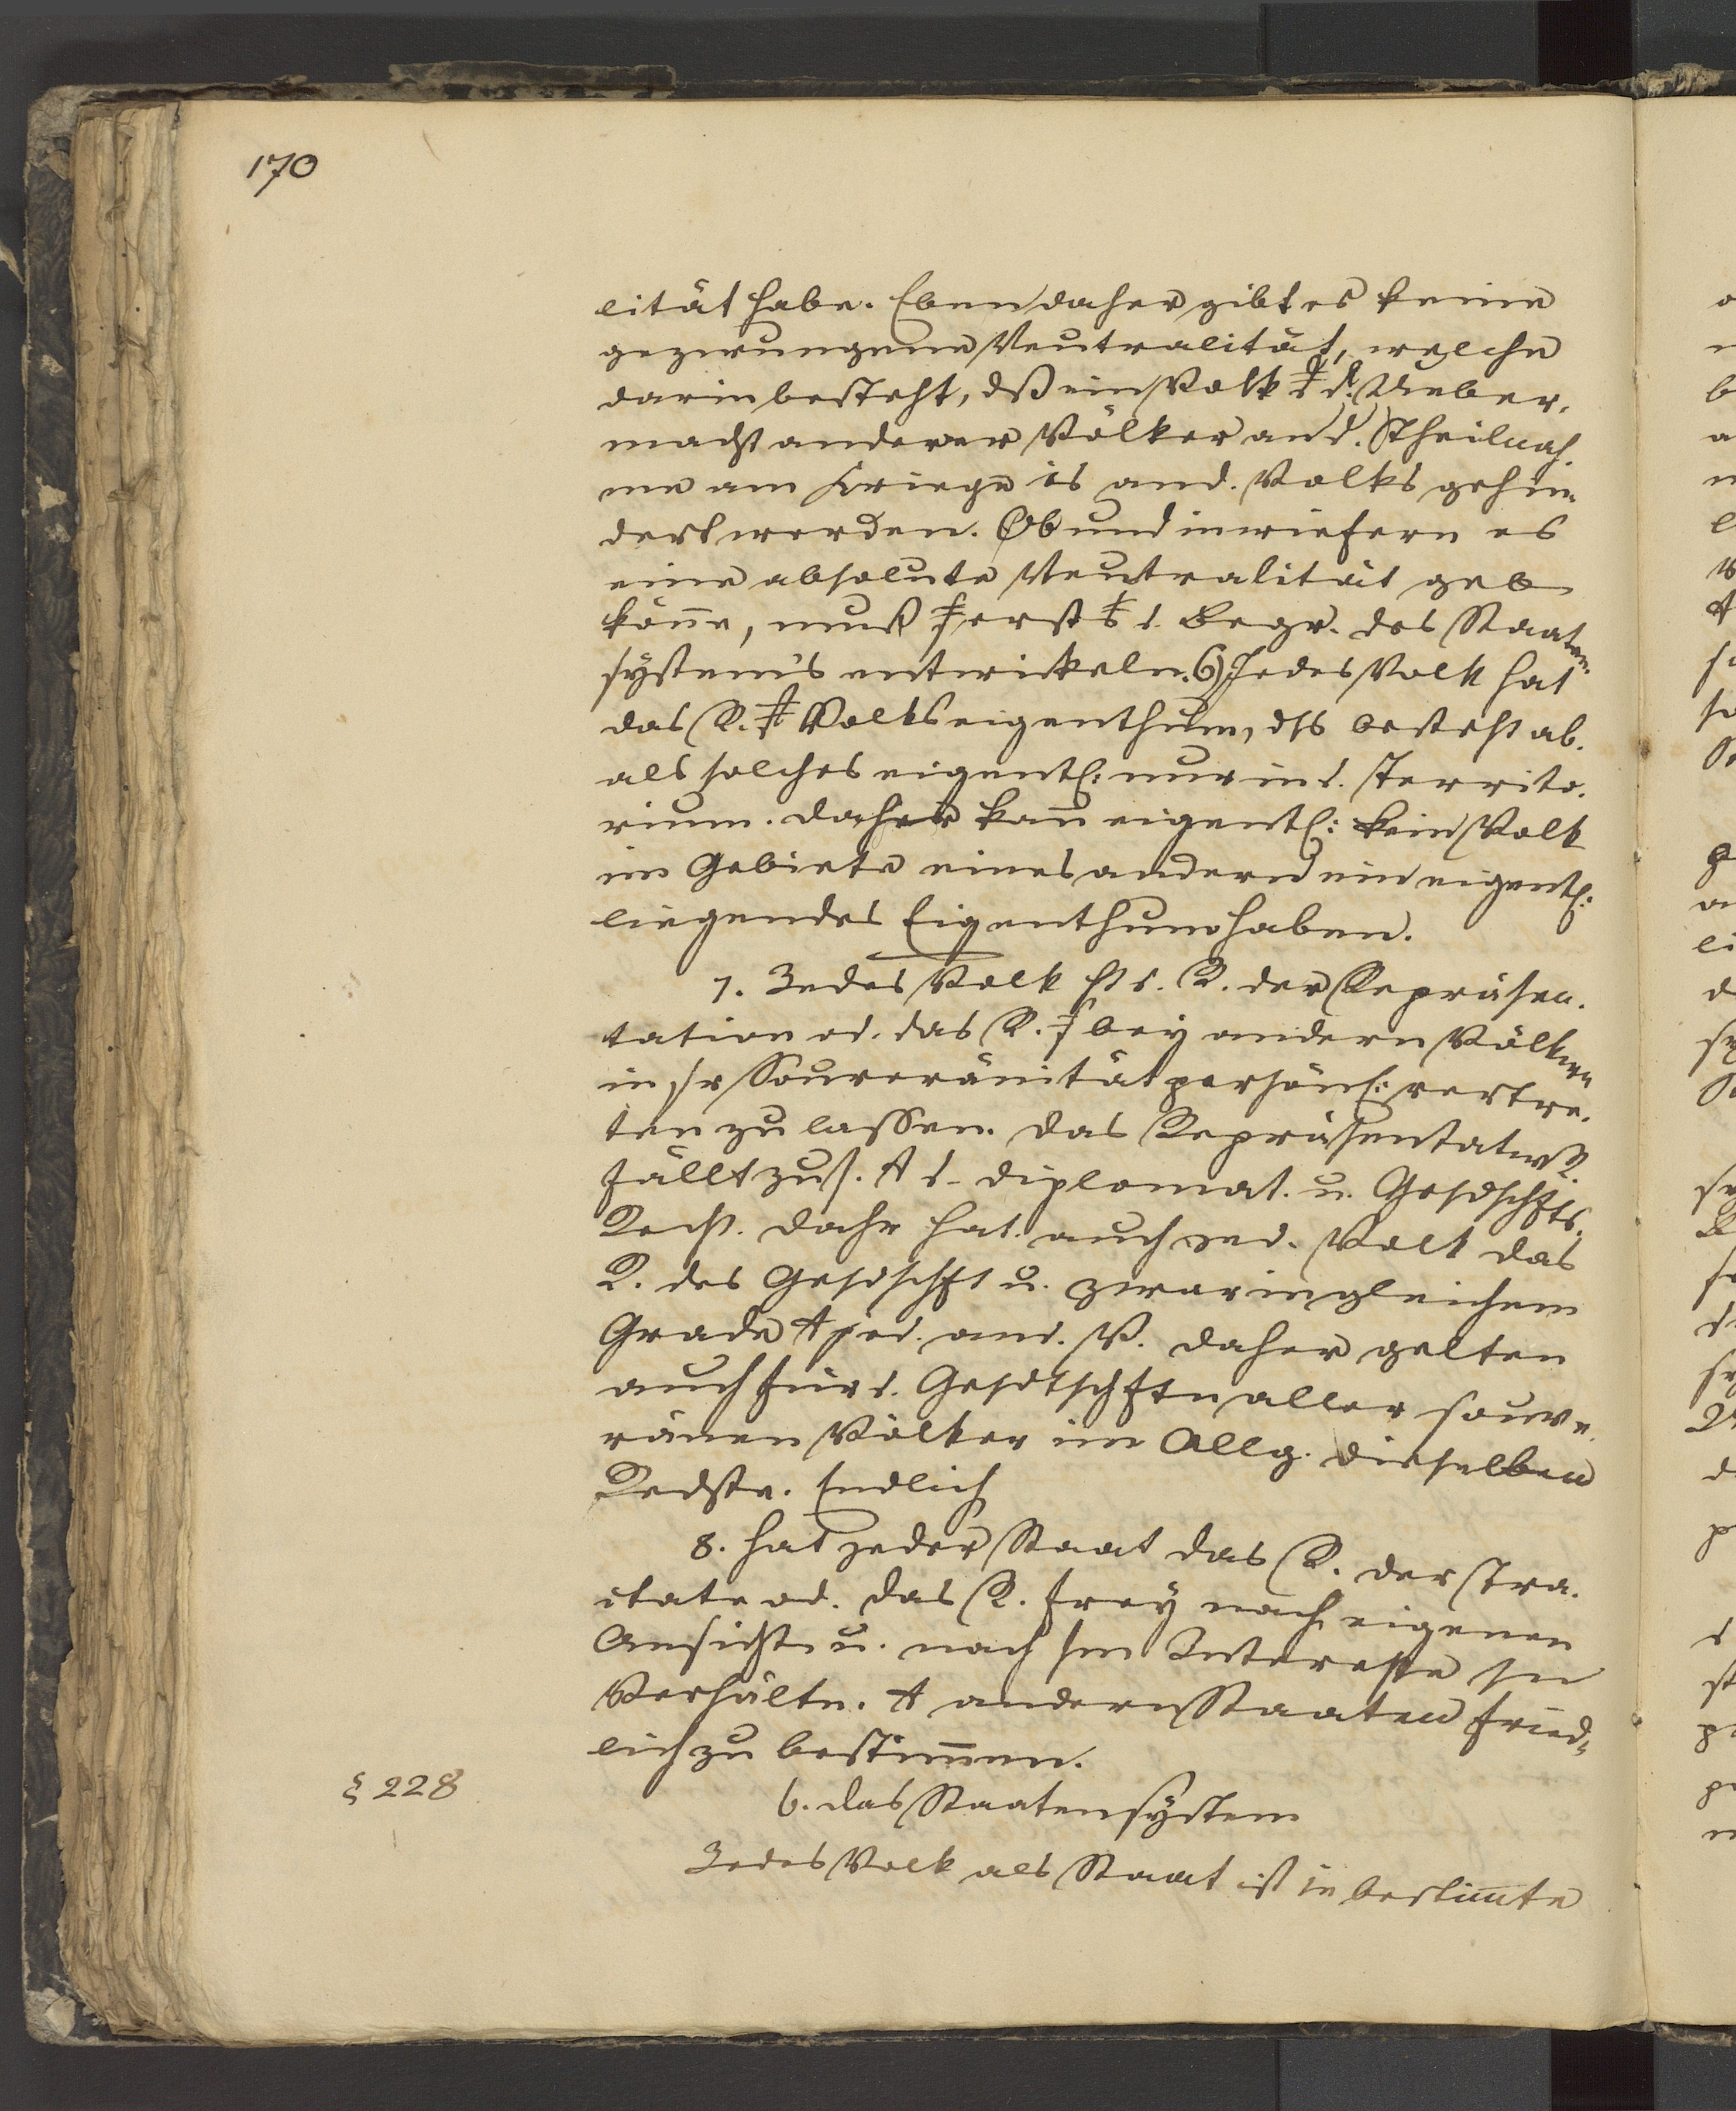 170
lität habe. Eben daher gibt es keine
gezwungene Neutralität, welche
darin besteht, dß ein Volk d. Ueber-
macht anderer Völker an d. Theilnah-
me am Kriege is and. Volks gehin-
dert werden. Ob und inwiefern es
eine absolute Neutralität geb
köñe, muß erst d. Begr. des Staaten-
system's entwickeln. 6) Jedes Volk hat
das R. Volkseigenthum, dß besteht ab.
als solches eigentl: nur in d. Territo-
rium. Daher kañ eigentl: kein Volk
im Gebiete eines andern ein eigentl:
liegendes Eigenthum haben.
7. Jedes Volk ht d. R. der Repräsen-
tation od. das R. bey andern Völkern
in sr Souveränität persönl: vertre-
ten zu lassen. Das Repräsentat.
fällt zus. d. diplomat. u. Gesdschfts-
Recht. Dahr hat auch jed. Volk das
R. des Gesdschft u. zwar in gleichem
Grade jed. and. V. Daher gelten
auch für d. Gesdtschftn aller souve-
ränen Völker im Allg. dieselben
Rechte. Endlich
8. hat jeder Staat das R. der Tra-
ctate od. das R. frey nach eigenen
Ansicht. u. nach sm Interesse sn
Verhältn. andern Staaten fried-
lich zu bestim̄en.
§ 228
b. Das Staatensystem
Jedes Volk als Staat ist in bestim̄te